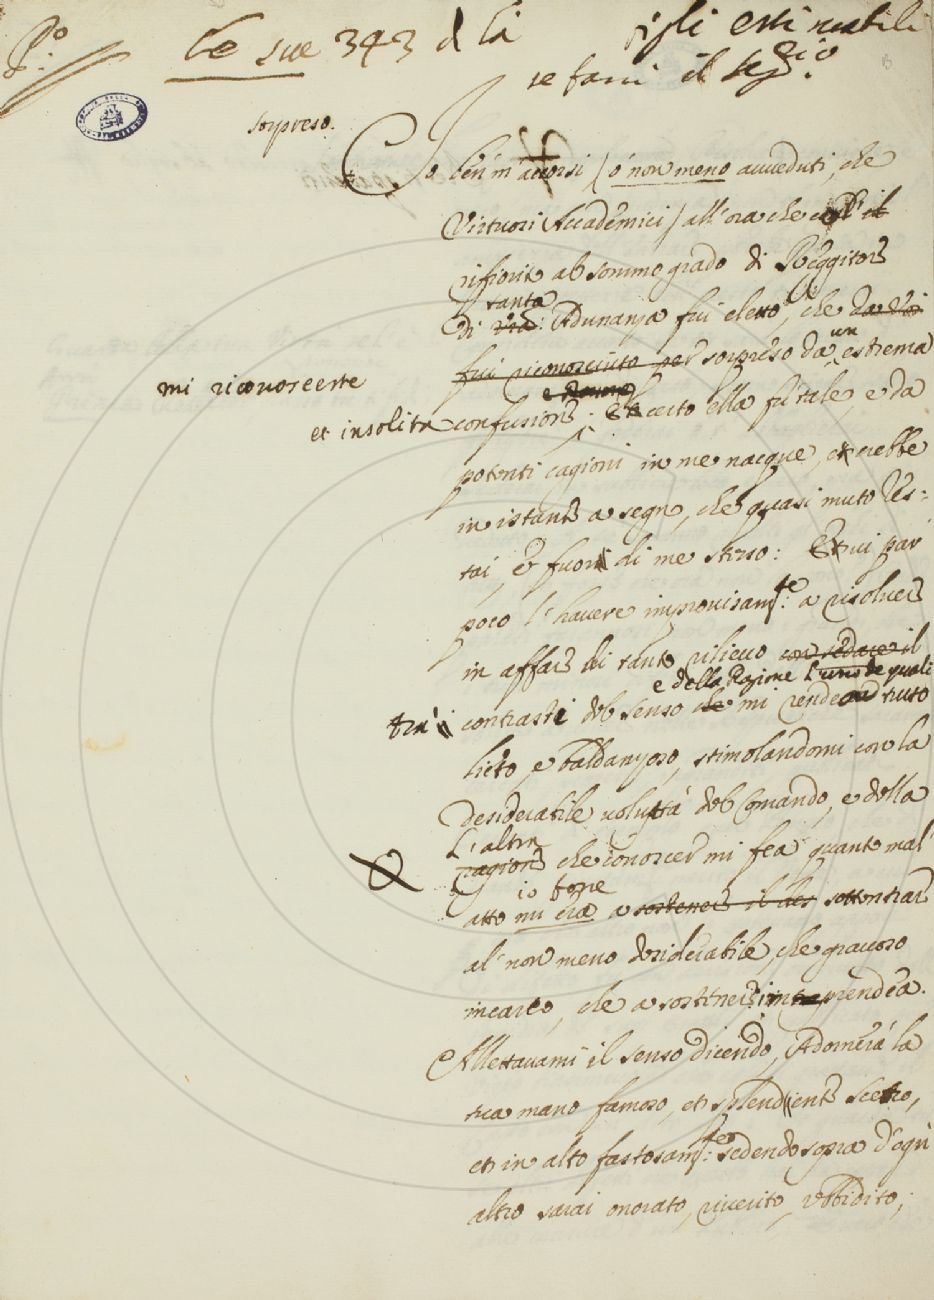 P.o le sue 343 d la figli estimabili
se farsi il seg.rio
sorpreso.
Io ben m'accorsi (ò non meno avveduti, che
Virtuosi Accademici) all'ora che
rifiorite al sommo grado di Reggitore
tanta
di v'ra: Adunanza fui eletto, che da voi
un
fui riconosciuto per sorpreso da estrema
mi riconoscerte
et insolita confusione; Et certo ella fu tale, e da
potenti cagioni in me nacque, et crebbe
in istante a segno, che quasi muto res-
tai, e fuori di me stesso: Et vi par
poco l'havere improvisam.te a risolvere
in affare di tanto rilievo con sedare il
e della Ragione L'uno de quali
trà i contrasti del senso che mi rende tutto
lieto, e baldanzoso, stimolandomi con la
desiderabile voluttà del Comando, e della
L'altra
ragione che conoscer mi fea quanto mal'
io fone
atto mi era a sostenere il des sottentrare
al' non meno desiderabile, che gravoso
incarco, che a sostinere imprendea.
Allettavami il senso dicendo, Adornerà la
tua mano famoso, et splendente Scetro,
et in alto fastosam.te sedendo sopra d'ogn'
altro sarai onorato, riverito, ubbidito;